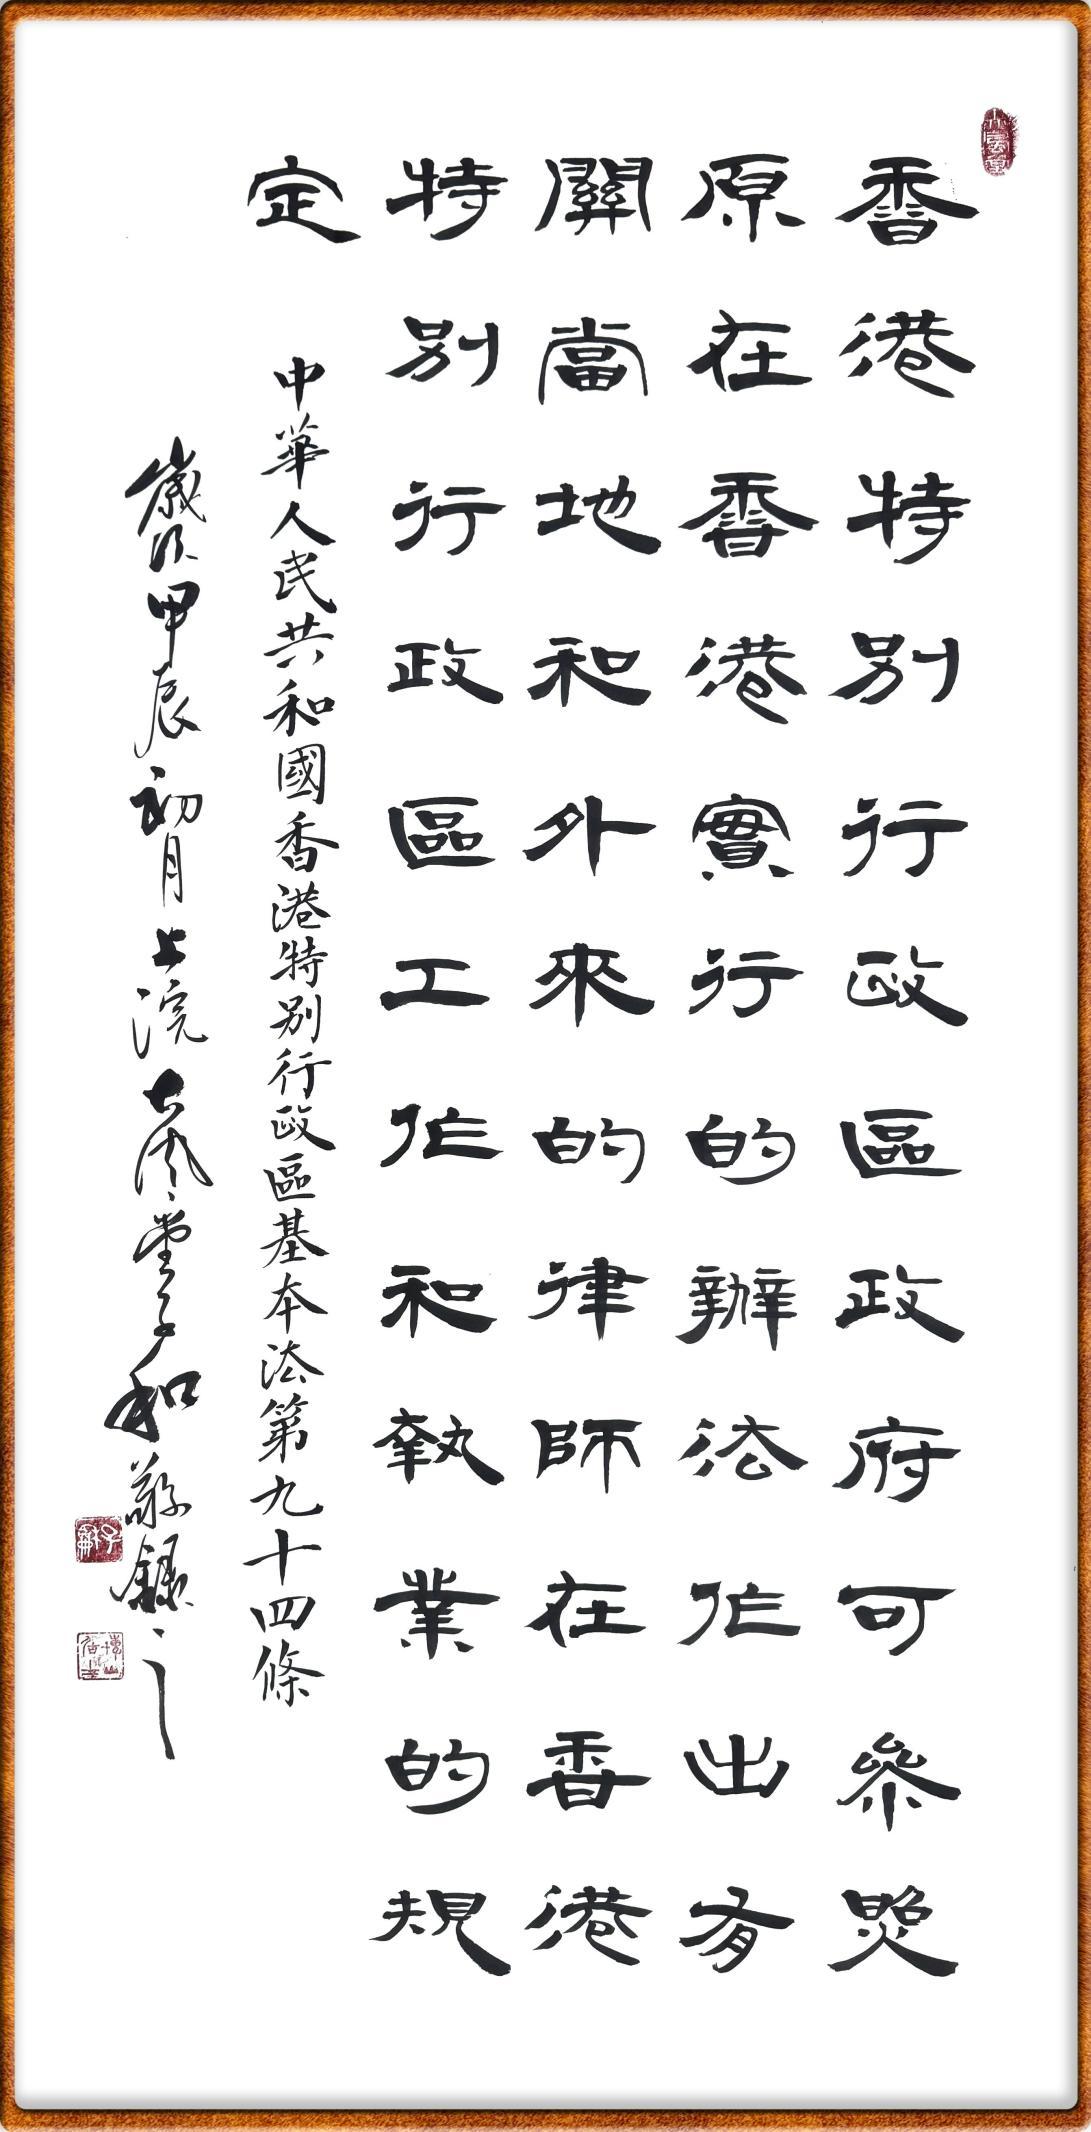 香港特別行政區政府可參照
原在香港實行的辦法作出有
關當地和外來的律師在香港
特別行政區工作和執業的規
定
中華人民共和國香港特別行政區基本法第九十四條
歲次甲辰初月上浣大風堂子和敬錄之